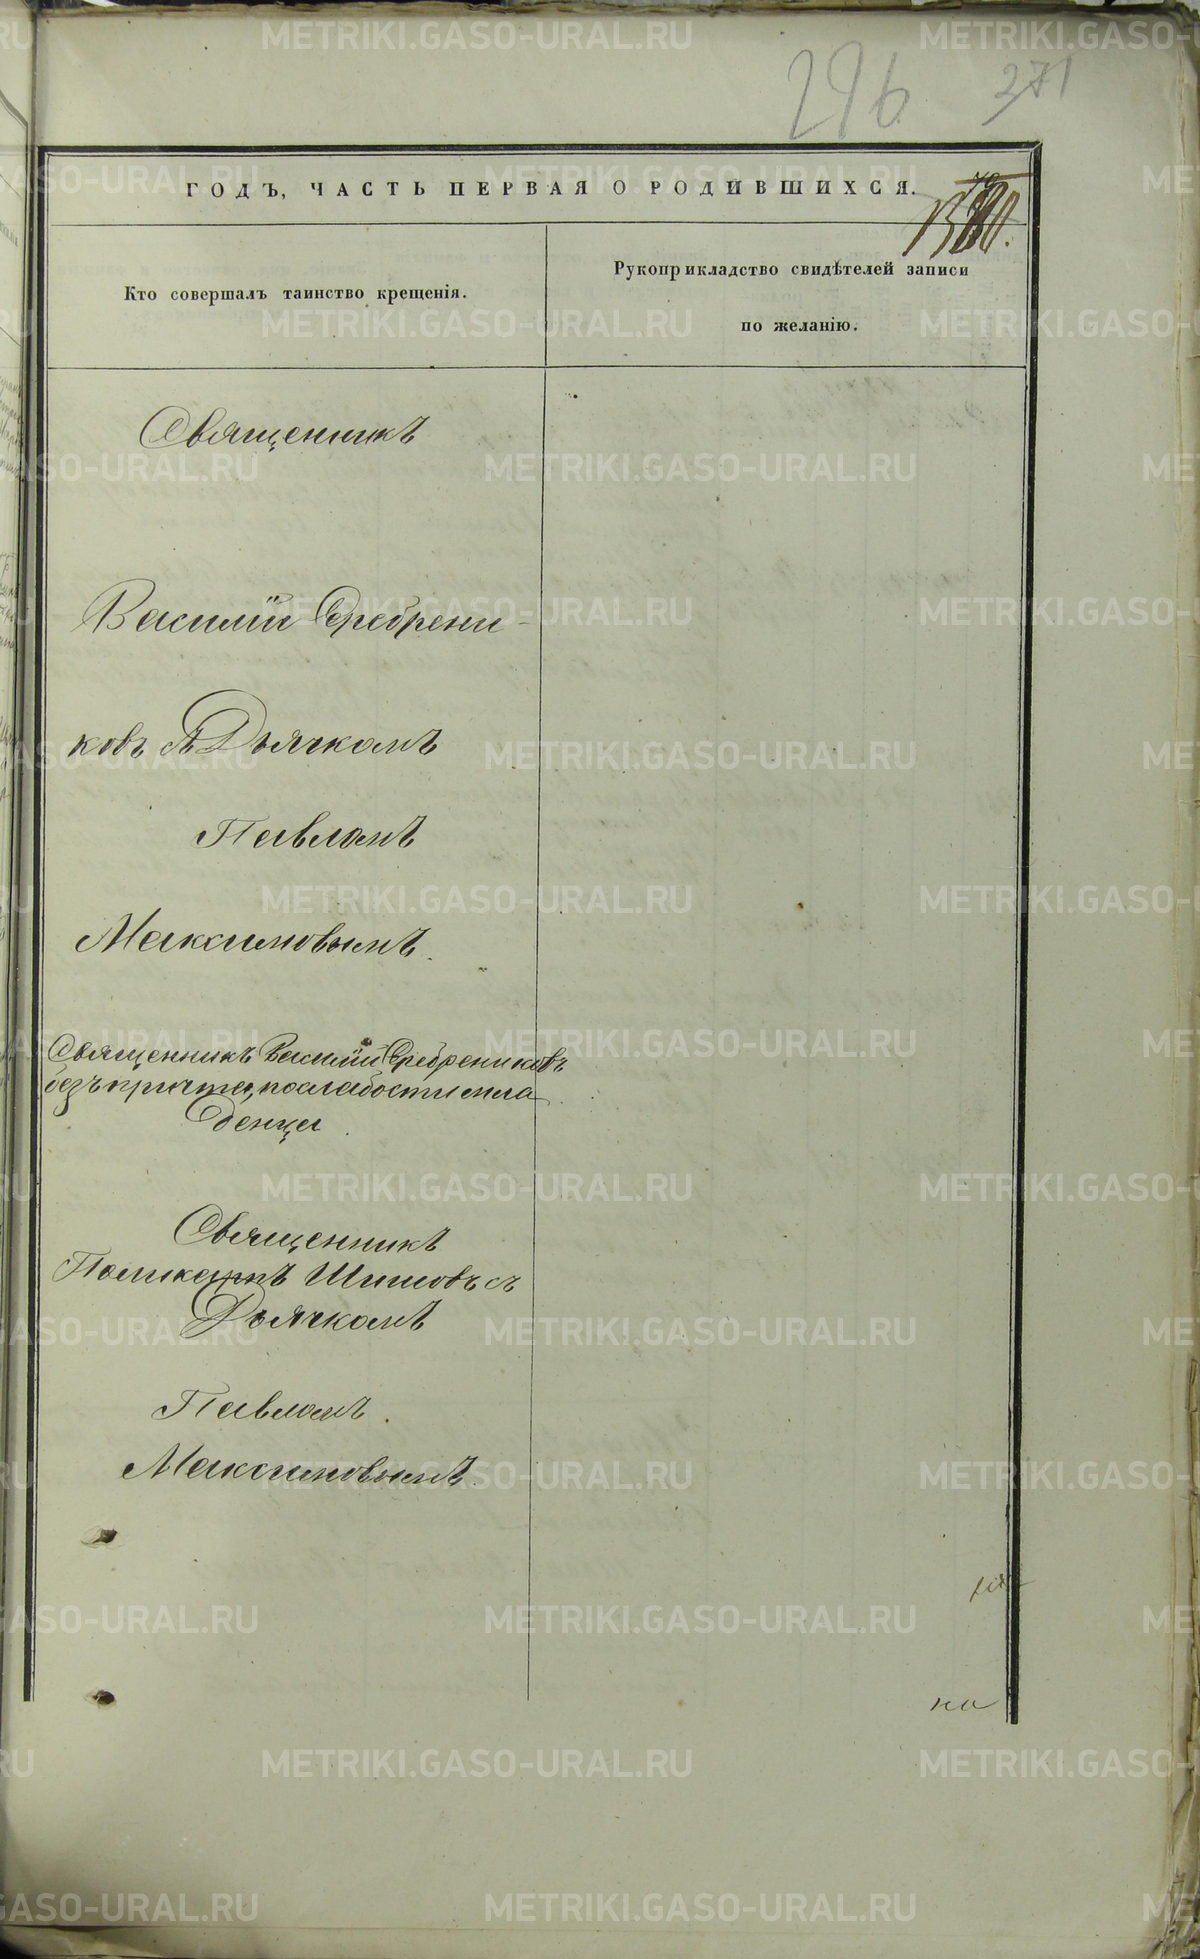 296 371
ГОДЪ, ЧАСТЬ ПЕРВАЯ О РОДИВШИХСЯ.
Кто совершалъ таинство крещенія.
Рукоприкладство свидѣтелей записи
по желанію.
Священникъ
Василій Сребрени-
ковъ съ Дьячкомъ
Павломъ
Максимовымъ.
Священникъ Василій Сребрениковъ
безъ причта, по слабости мла
денца
Священникъ
Поликарпъ Шишовъ съ
Дьячкомъ
Павломъ.
Максимовымъ.
на
METRIKI.GASO-URAL.RU